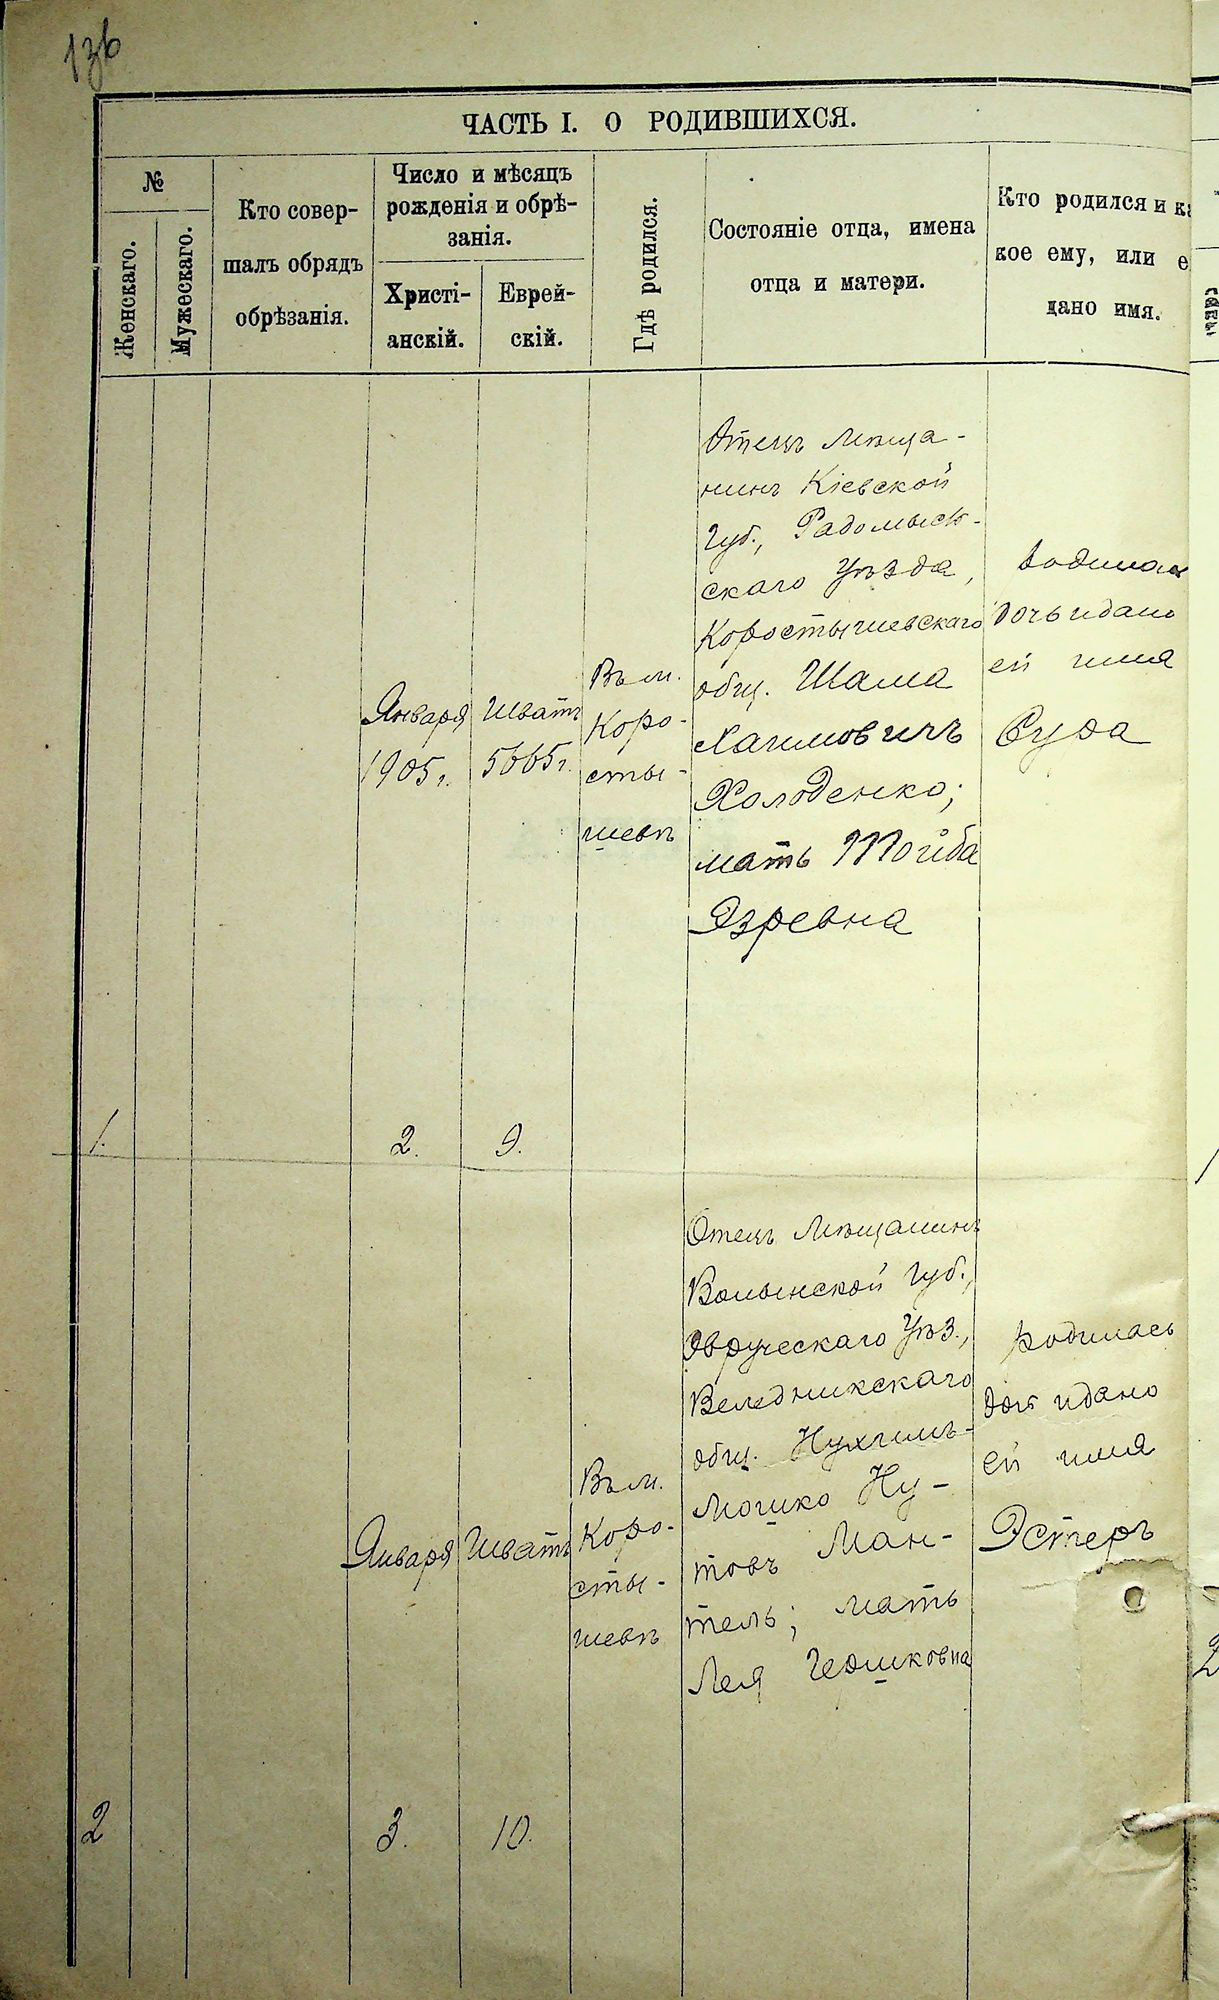 136
ЧАСТЬ I. О РОДИВШИХСЯ.
№
Женскаго.
Мужескаго.
Кто совер-
шалъ обрядъ
обрѣзанія.
Число и мѣсяцъ
рожденія и обрѣ-
занія.
Христі-
анскій.
Еврей-
скій.
Гдѣ родился.
Состояніе отца, имена
отца и матери.
Кто родился и ка
кое ему, или е
дано имя.
1.
Января
1905г.
2.
Шватъ
5665г.
9.
Въ м.
Коро-
сты-
шевѣ
Отецъ мѣща-
нинъ Кіевской
губ., Радомысль-
скаго уѣзда,
Коростышевскаго
общ. Шама
Хаимовичъ
Холоденко;
мать Тойба
Эзревна
родилась
дочь и дано
ей имя
Суда
2
Января
3.
Шватъ
10.
Въ м.
Коро-
сты-
шевѣ
Отецъ мѣщанинъ
Волынской губ.,
Овручскаго уѣз.,
Веледникскаго
общ. Нухимъ-
Мошко Ну-
товъ Ман-
тель; мать
Лея Гершковна
родилась
дочь и дано
ей имя
Эстеръ
1
2